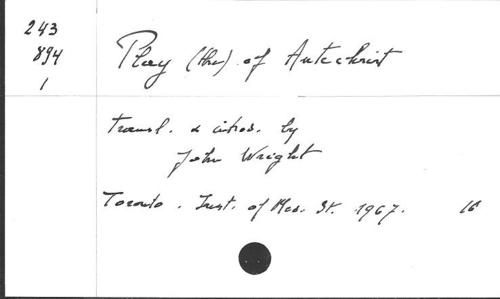 243
894
1
Play (the) of Antechrist
Transl. & introd. by
John Wright
Toronto. Inst. of Med. St. 1967. 16